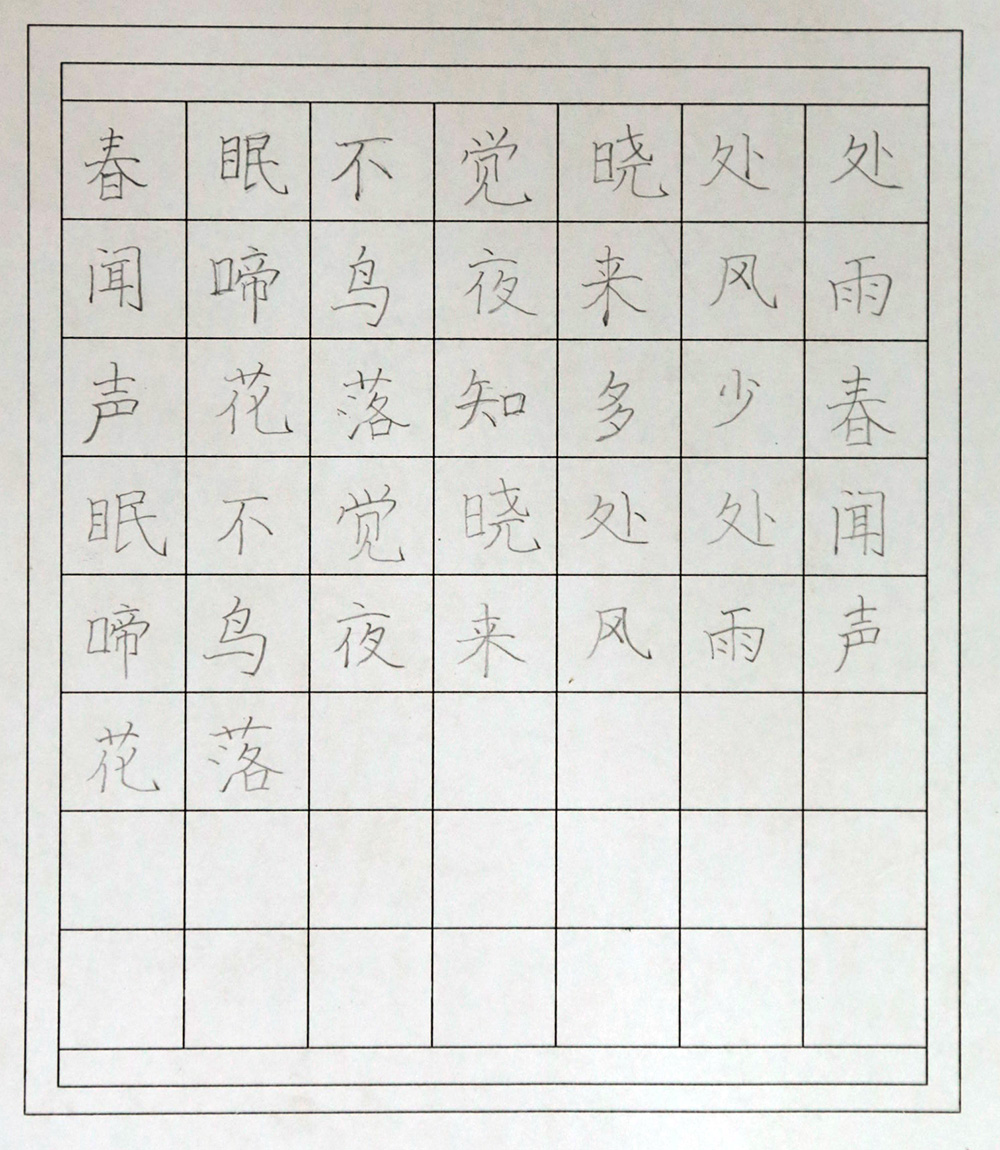 春眠不觉晓处处
闻啼鸟夜来风雨
声花落知多少春
眠不觉晓处处闻
啼鸟夜来风雨声
花落